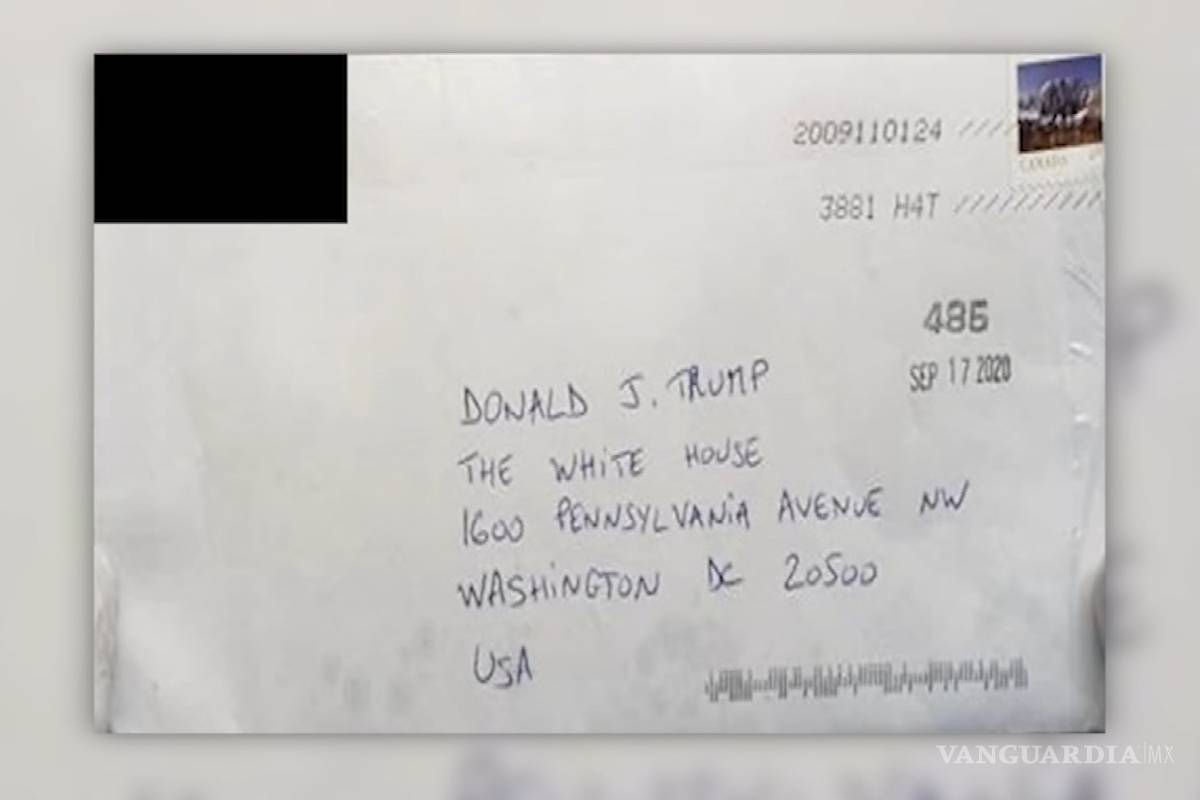 2009110124
CANADA
3881 H4T
486
SEP 17 2020
DONALD J. TRUMP
THE WHITE HOUSE
1600 PENNSYLVANIA AVENUE NW
WASHINGTON DC 20500
USA
VANGUARDIA|MX